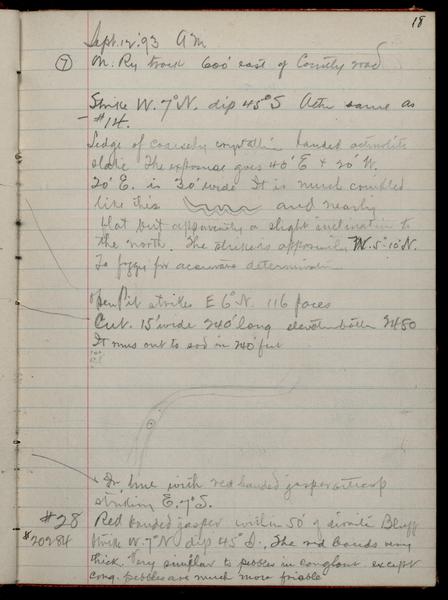 18
Sept. 12, '93 A.M.
7 On Ry track 600' east of County road
Strike W. 7° N. dip 45° S same as
#14.
Ledge of coarsely crystallin banded actinolite
slate. The exposure goes 40' E & 20' W.
20' E. is 30' wide It is much crumbled
like this and nearly
flat but apparently a slight inclination to
the north. The strike is apparently W. 5-10° N.
To foggy for accurate determination
open Pit strikes E 6° N. 116 paces
Cut. 15' wide 240' long 2450
It runs out to sod in 240 feet
In line with red banded jasper outcrop
striking E. 7° S.
#28 Red banded jasper within 50' of diorite Bluff
#20284 Strike W. 7° N dip 45° S. The red bands very
thick. Very similar to pebbles in conglom. except
cong. pebbles are much more friable